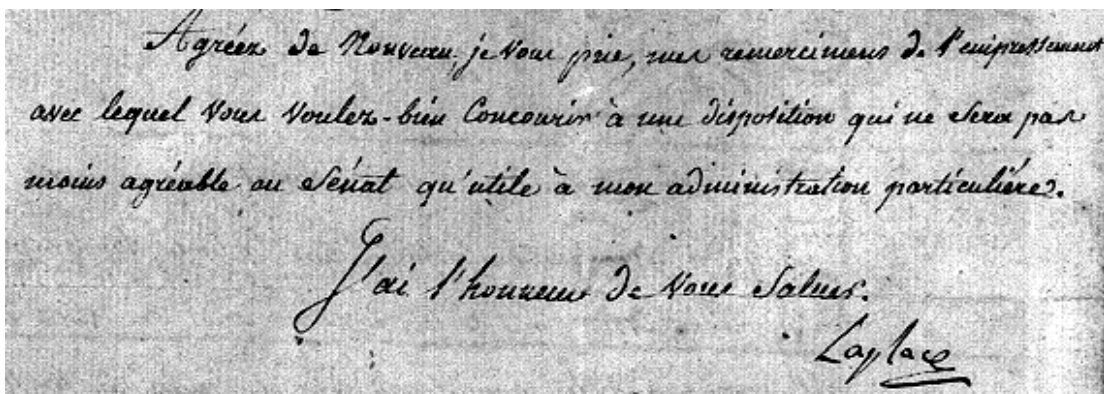 Agréez de Nouveau, je vous prie, mes remercimens de l'empressement
avec lequel Vous Voulez-bien Concourir à une disposition qui ne sera pas
moins agréable au Sénat qu'utile à mon administration particulière.
J'ai l'honneur de Vous Saluer.
Laplace